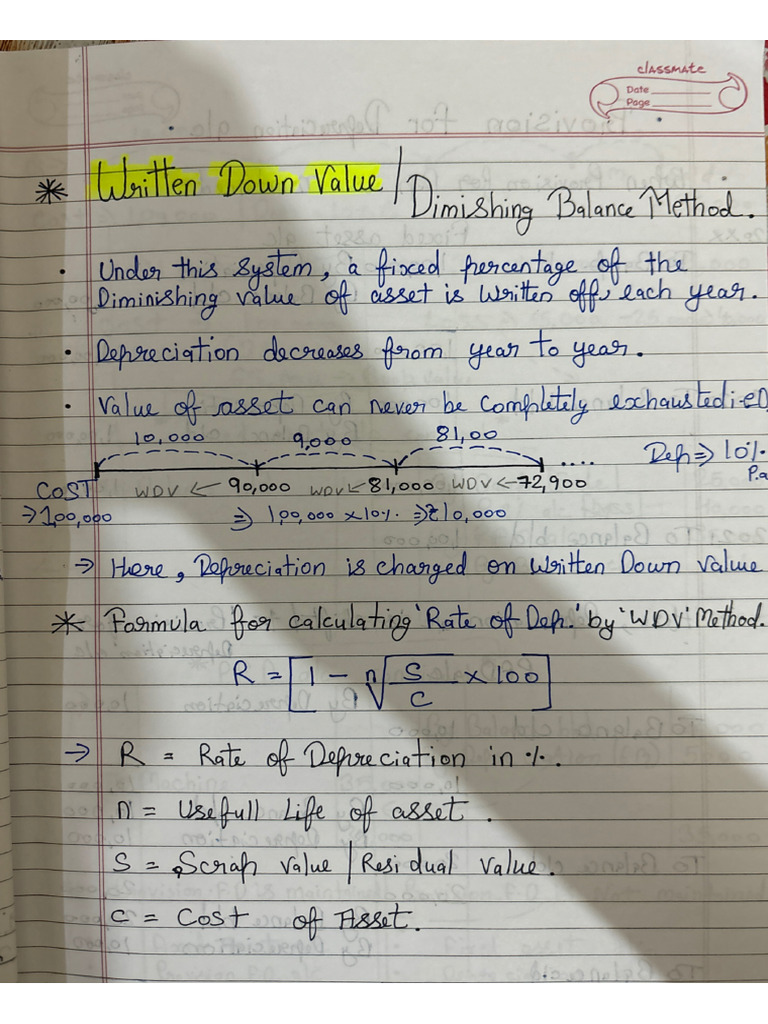 classmate
Date
Page
* Written Down Value / Dimishing Balance Method.
• Under this system, a fixed percentage of the
Diminishing value of asset is written off, each year.
• Depreciation decreases from year to year.
• Value of asset can never be completely exhausted i.e 0
10,000 9,000 81,00
.... Dep ⇒ 10%
P.a
COST WDV ← 90,000 WDV ← 81,000 WDV ← 72,900
→ 1,00,000 ⇒ 1,00,000 × 10% ⇒ ₹10,000
→ Here, Depreciation is charged on Written Down Value
* Formula for calculating 'Rate of Dep.' by 'WDV' Method.
R = [1 - ⁿ√(S/C) × 100]
→ R = Rate of Depreciation in %.
n = Usefull Life of asset.
S = Scrap value / Residual value.
C = Cost of Asset.